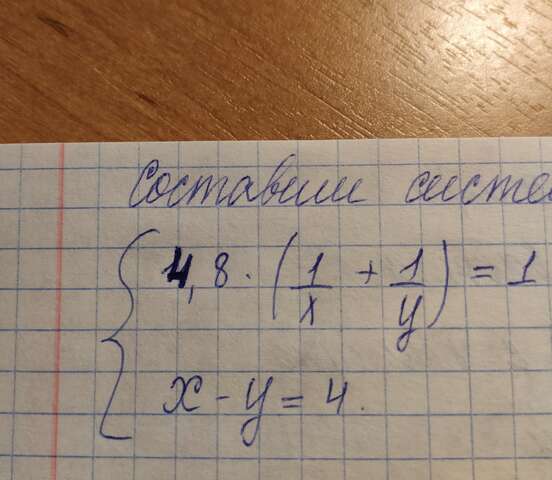 Составим систе
4,8 · (1/x + 1/y) = 1
x - y = 4.